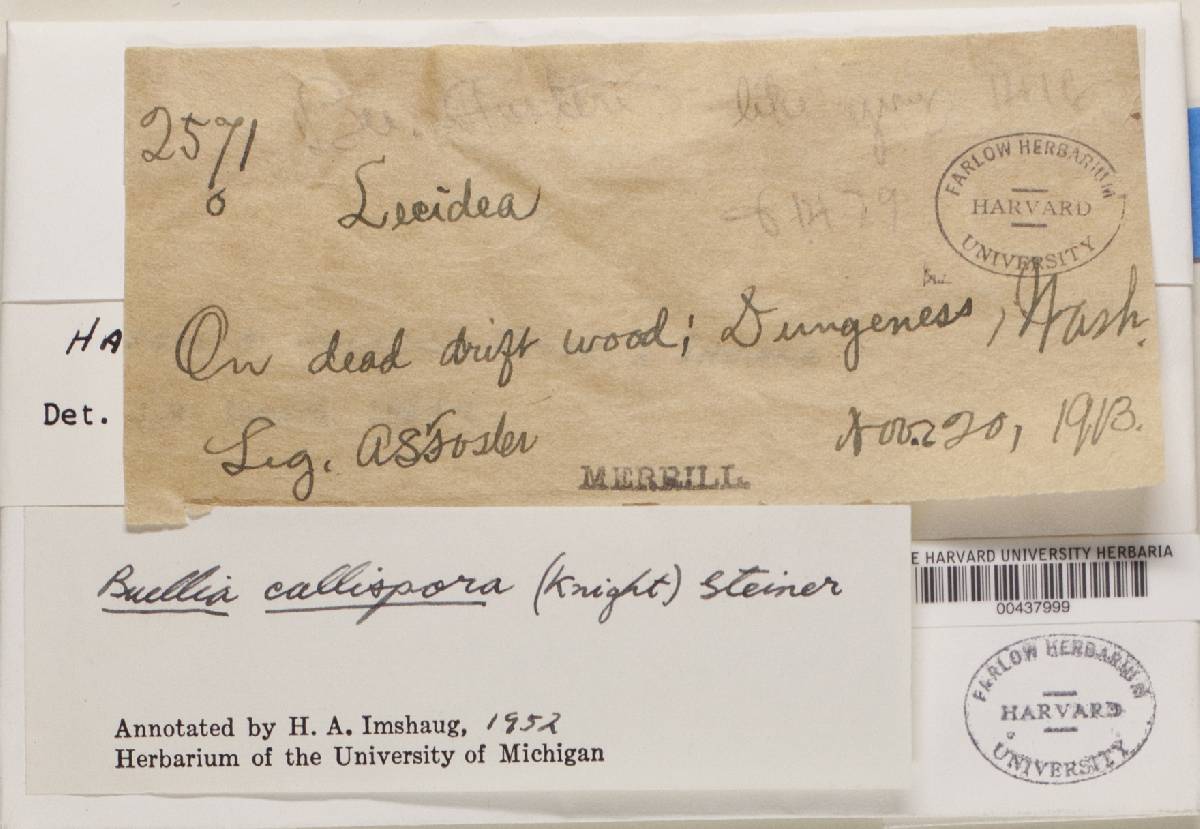 like
2571
o
Lecidea
FARLOW HERBARIUM
HARVARD
UNIVERSITY
On dead drift wood; Dungeness, Wash.
HA
Det.
Leg. ASFoster
Nov. 20, 1913.
MERRILL.
Buellia callispora (Knight) Steiner
E HARVARD UNIVERSITY HERBARIA
00437999
FARLOW HERBARIUM
HARVARD
UNIVERSITY
Annotated by H. A. Imshaug, 1952
Herbarium of the University of Michigan